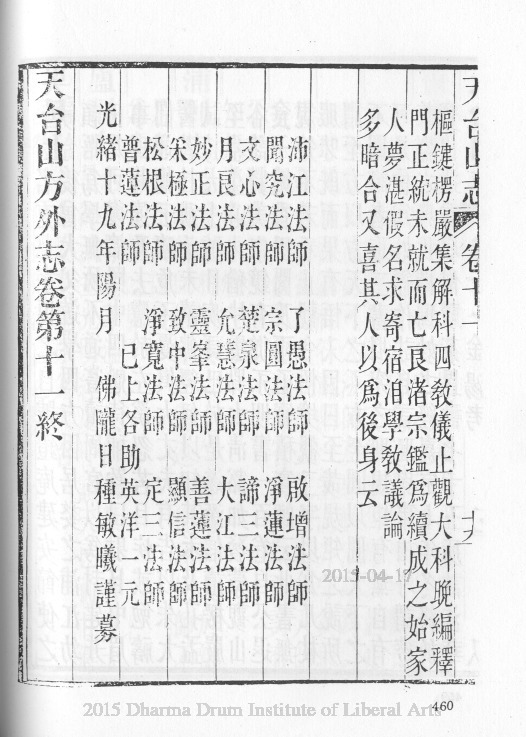 天台山志 卷十一 十六
樞鍵楞嚴集解科四教儀止觀大科晚編釋
門正統未就而亡良渚宗鑑爲續成之始家
人夢湛假名求寄宿洎學教議論
多暗合又喜其人以爲後身云
沛江法師 了愚法師 啟增法師
聞究法師 宗圓法師 淨蓮法師
文心法師 楚泉法師 諦三法師
月良法師 允慧法師 大江法師
妙正法師 靈峯法師 善蓮法師
采極法師 致中法師 顯信法師
松根法師 淨寬法師 定三法師
普蓮法師 已上各助英洋一元
光緒十九年陽月 佛隴日種敏曦謹募
天台山方外志卷第十一終
2015-04-17
460
2015 Dharma Drum Institute of Liberal Arts